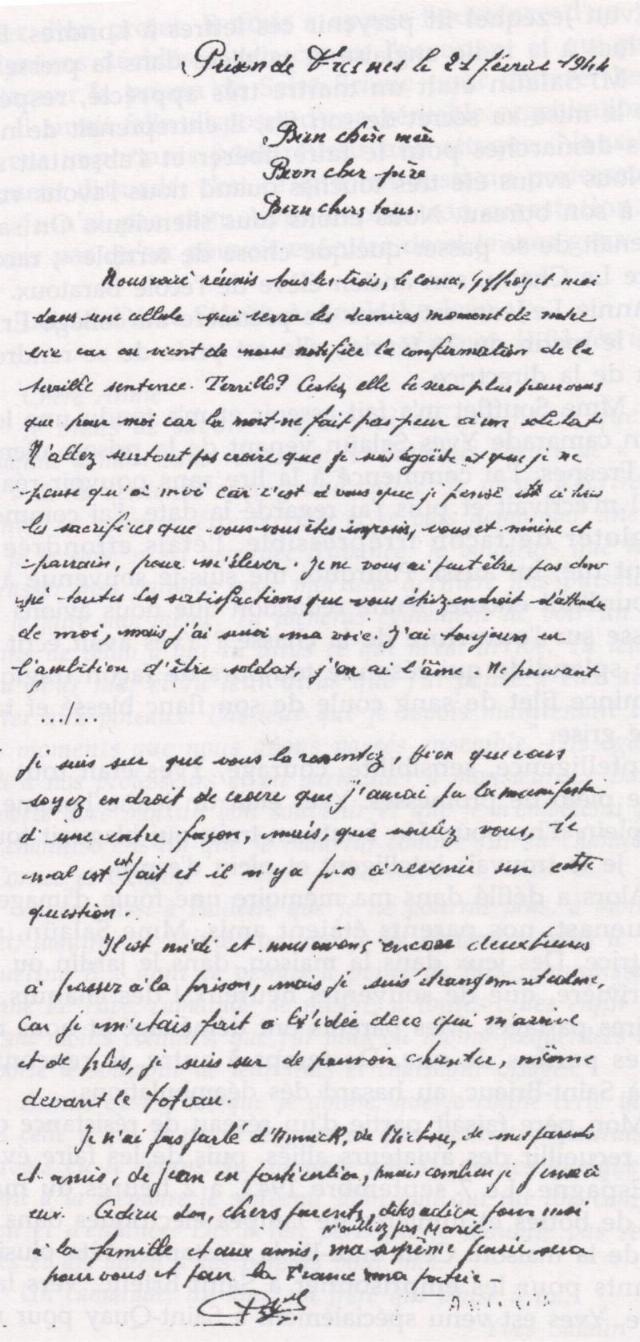 Prison de Fresnes le 21 février 1944
Bien chère mère
Bien cher père
Bien chers tous.
Nous voici réunis tous les trois, le Cornec, Geffroy et moi
dans une cellule qui verra les derniers moment de notre
vie car on vient de nous notifier la confirmation de la
terrible sentence. Terrible? Certes, elle le sera plus pour vous
que pour moi car la mort ne fait pas peur à un soldat.
N'allez surtout pas croire que je suis égoïste et que je ne
pense qu'à moi car c'est à vous que je pense à tous
les sacrifices que vous vous êtes imposés, vous et minine et
parrain, pour m'élever. Je ne vous ai peut être pas don
né toutes les satisfactions que vous étiez en droit d'attendre
de moi, mais j'ai suivi ma voie. J'ai toujours eu
l'ambition d'être soldat, j'en ai l'âme. Ne pleurez
.../...
Je suis sur que vous la ressentez, bien que vous
soyez en droit de croire que j'aurai pu la manifester
d'une autre façon, mais, que voulez vous, le
mal est fait et il n'y a pas à revenir sur cette
question.
Il est midi et nous avons encore deux heures
à passer à la prison, mais je suis étrangement calme,
car je m'étais fait à l'idée de ce qui m'arrive
et de plus, je suis sur de pouvoir chanter, même
devant le poteau.
Je n'ai pas parlé d'Annick, de Michou, de mes parents
et amis, de Jean en particulier, mais combien je pense à
eux. Adieu donc, chers parents, dites adieu pour moi
n'oubliez pas Marie
à la famille et aux amis, ma suprême pensée sera
pour vous et pour la France ma patrie -